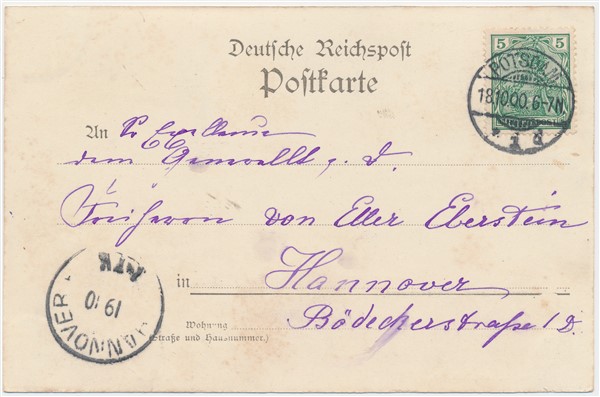 Deutsche Reichspost
Postkarte
5 5
POTSDAM
18.10.00.6-7N.
1 d
An Sr Excellence
dem Generallt. z. D.
Freiherrn von Eller Eberstein
in Hannover
Wohnung Bödeckerstraße 1 D.
(Straße und Hausnummer.)
HANNOVER
19 10